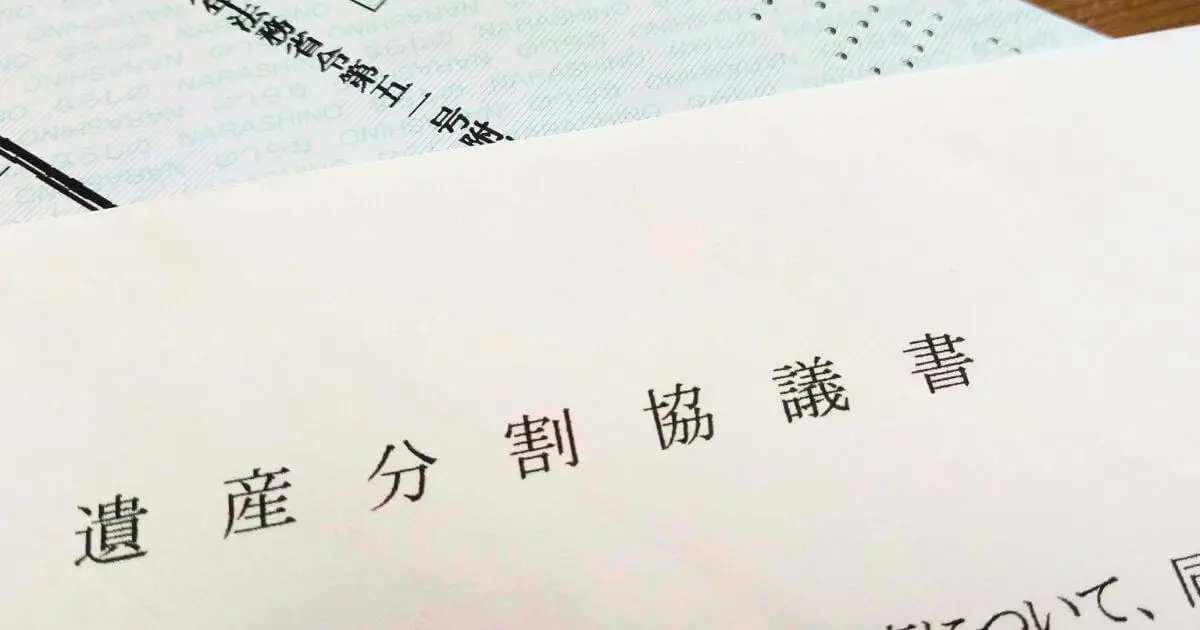 年法務省令第五一号附
NARASHINO ならしの NARASHINO
遺産分割協議書
について、同